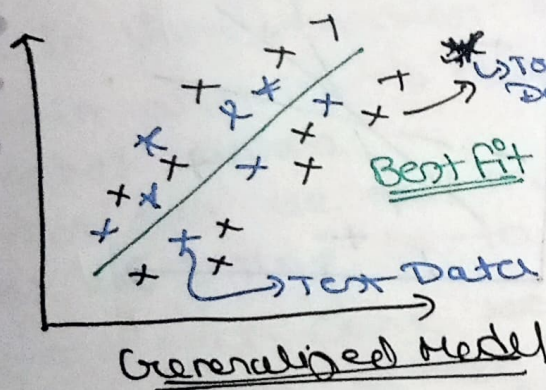 Best Fit
Test Data
Generalized Model